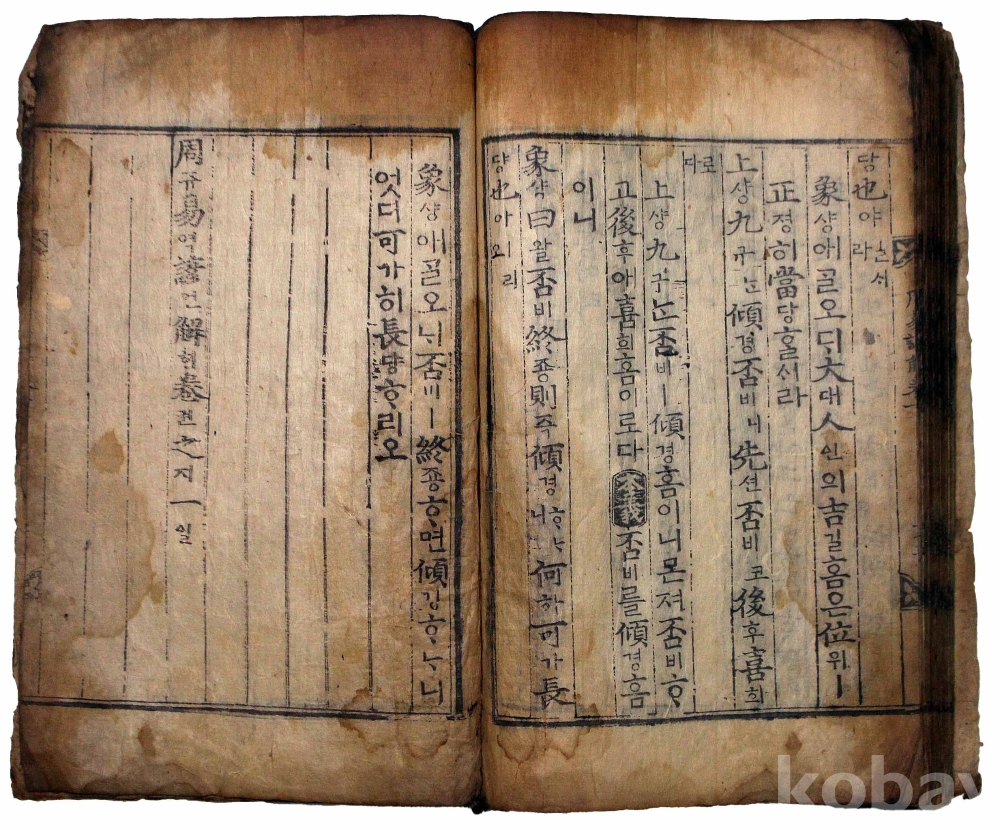 당也야라 ᄂᆞᆫ셔
象샹애ᄀᆞᆯ오ᄃᆡ大대人인의吉길홈은位위ㅣ
正졍히當당ᄒᆞᆯᄉᆡ라
上샹九구ᄂᆞᆫ傾경否비니先션否비코後후喜희
로다
上샹九구ᄂᆞᆫ否비ㅣ傾경홈이니몬져否비ᄒᆞ
고後후아喜희홈이로다 本義 否비를傾경홈
이니
象샹曰왈否비終죵則즉傾경ᄒᆞᄂᆞ니何하可가長
댱也야ㅣ리오
象샹애ᄀᆞᆯ오ᄃᆡ否비ㅣ終죵ᄒᆞ면傾경ᄒᆞᄂᆞ니
엇디可가히長댱ᄒᆞ리오
周쥬易역諺언解ᄒᆡ卷권之지一일
kobay